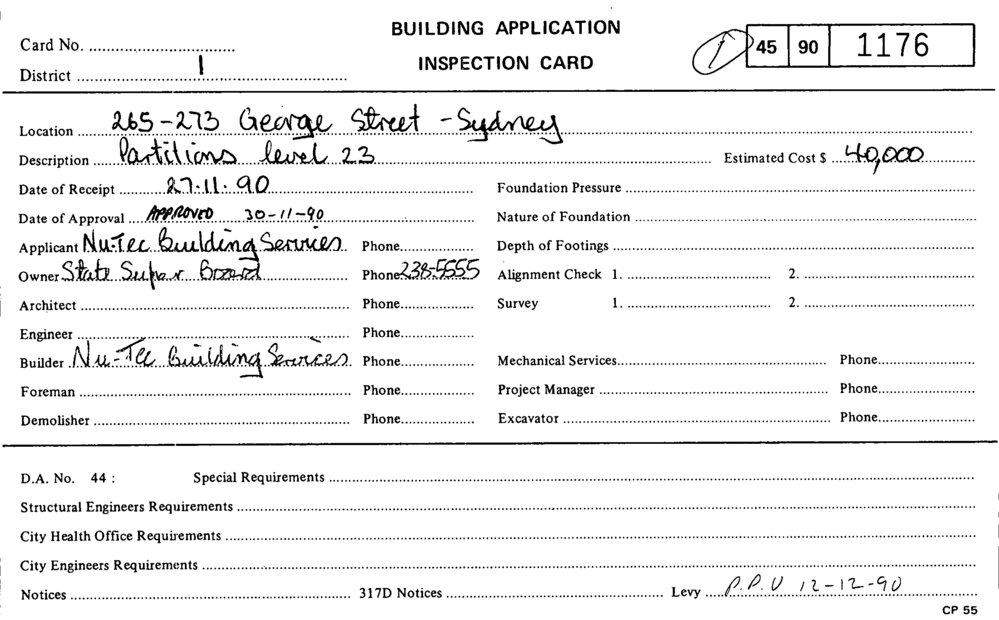 BUILDING APPLICATION
INSPECTION CARD
Card No. ....................................
District .................... 1 ....................
45 90 1176
Location 265-273 George Street - Sydney
Description Partitions level 23 Estimated Cost $ 40,000
Date of Receipt 27.11.90 Foundation Pressure
Date of Approval APPROVED 30-11-90 Nature of Foundation
Applicant Nu-Tec Building Services Phone Depth of Footings
Owner State Super Board Phone 238-5555 Alignment Check 1. 2.
Architect Phone Survey 1. 2.
Engineer Phone
Builder Nu-Tec Building Services Phone Mechanical Services Phone
Foreman Phone Project Manager Phone
Demolisher Phone Excavator Phone
D.A. No. 44 : Special Requirements
Structural Engineers Requirements
City Health Office Requirements
City Engineers Requirements
Notices 317D Notices Levy P.P.U 12-12-90
CP 55